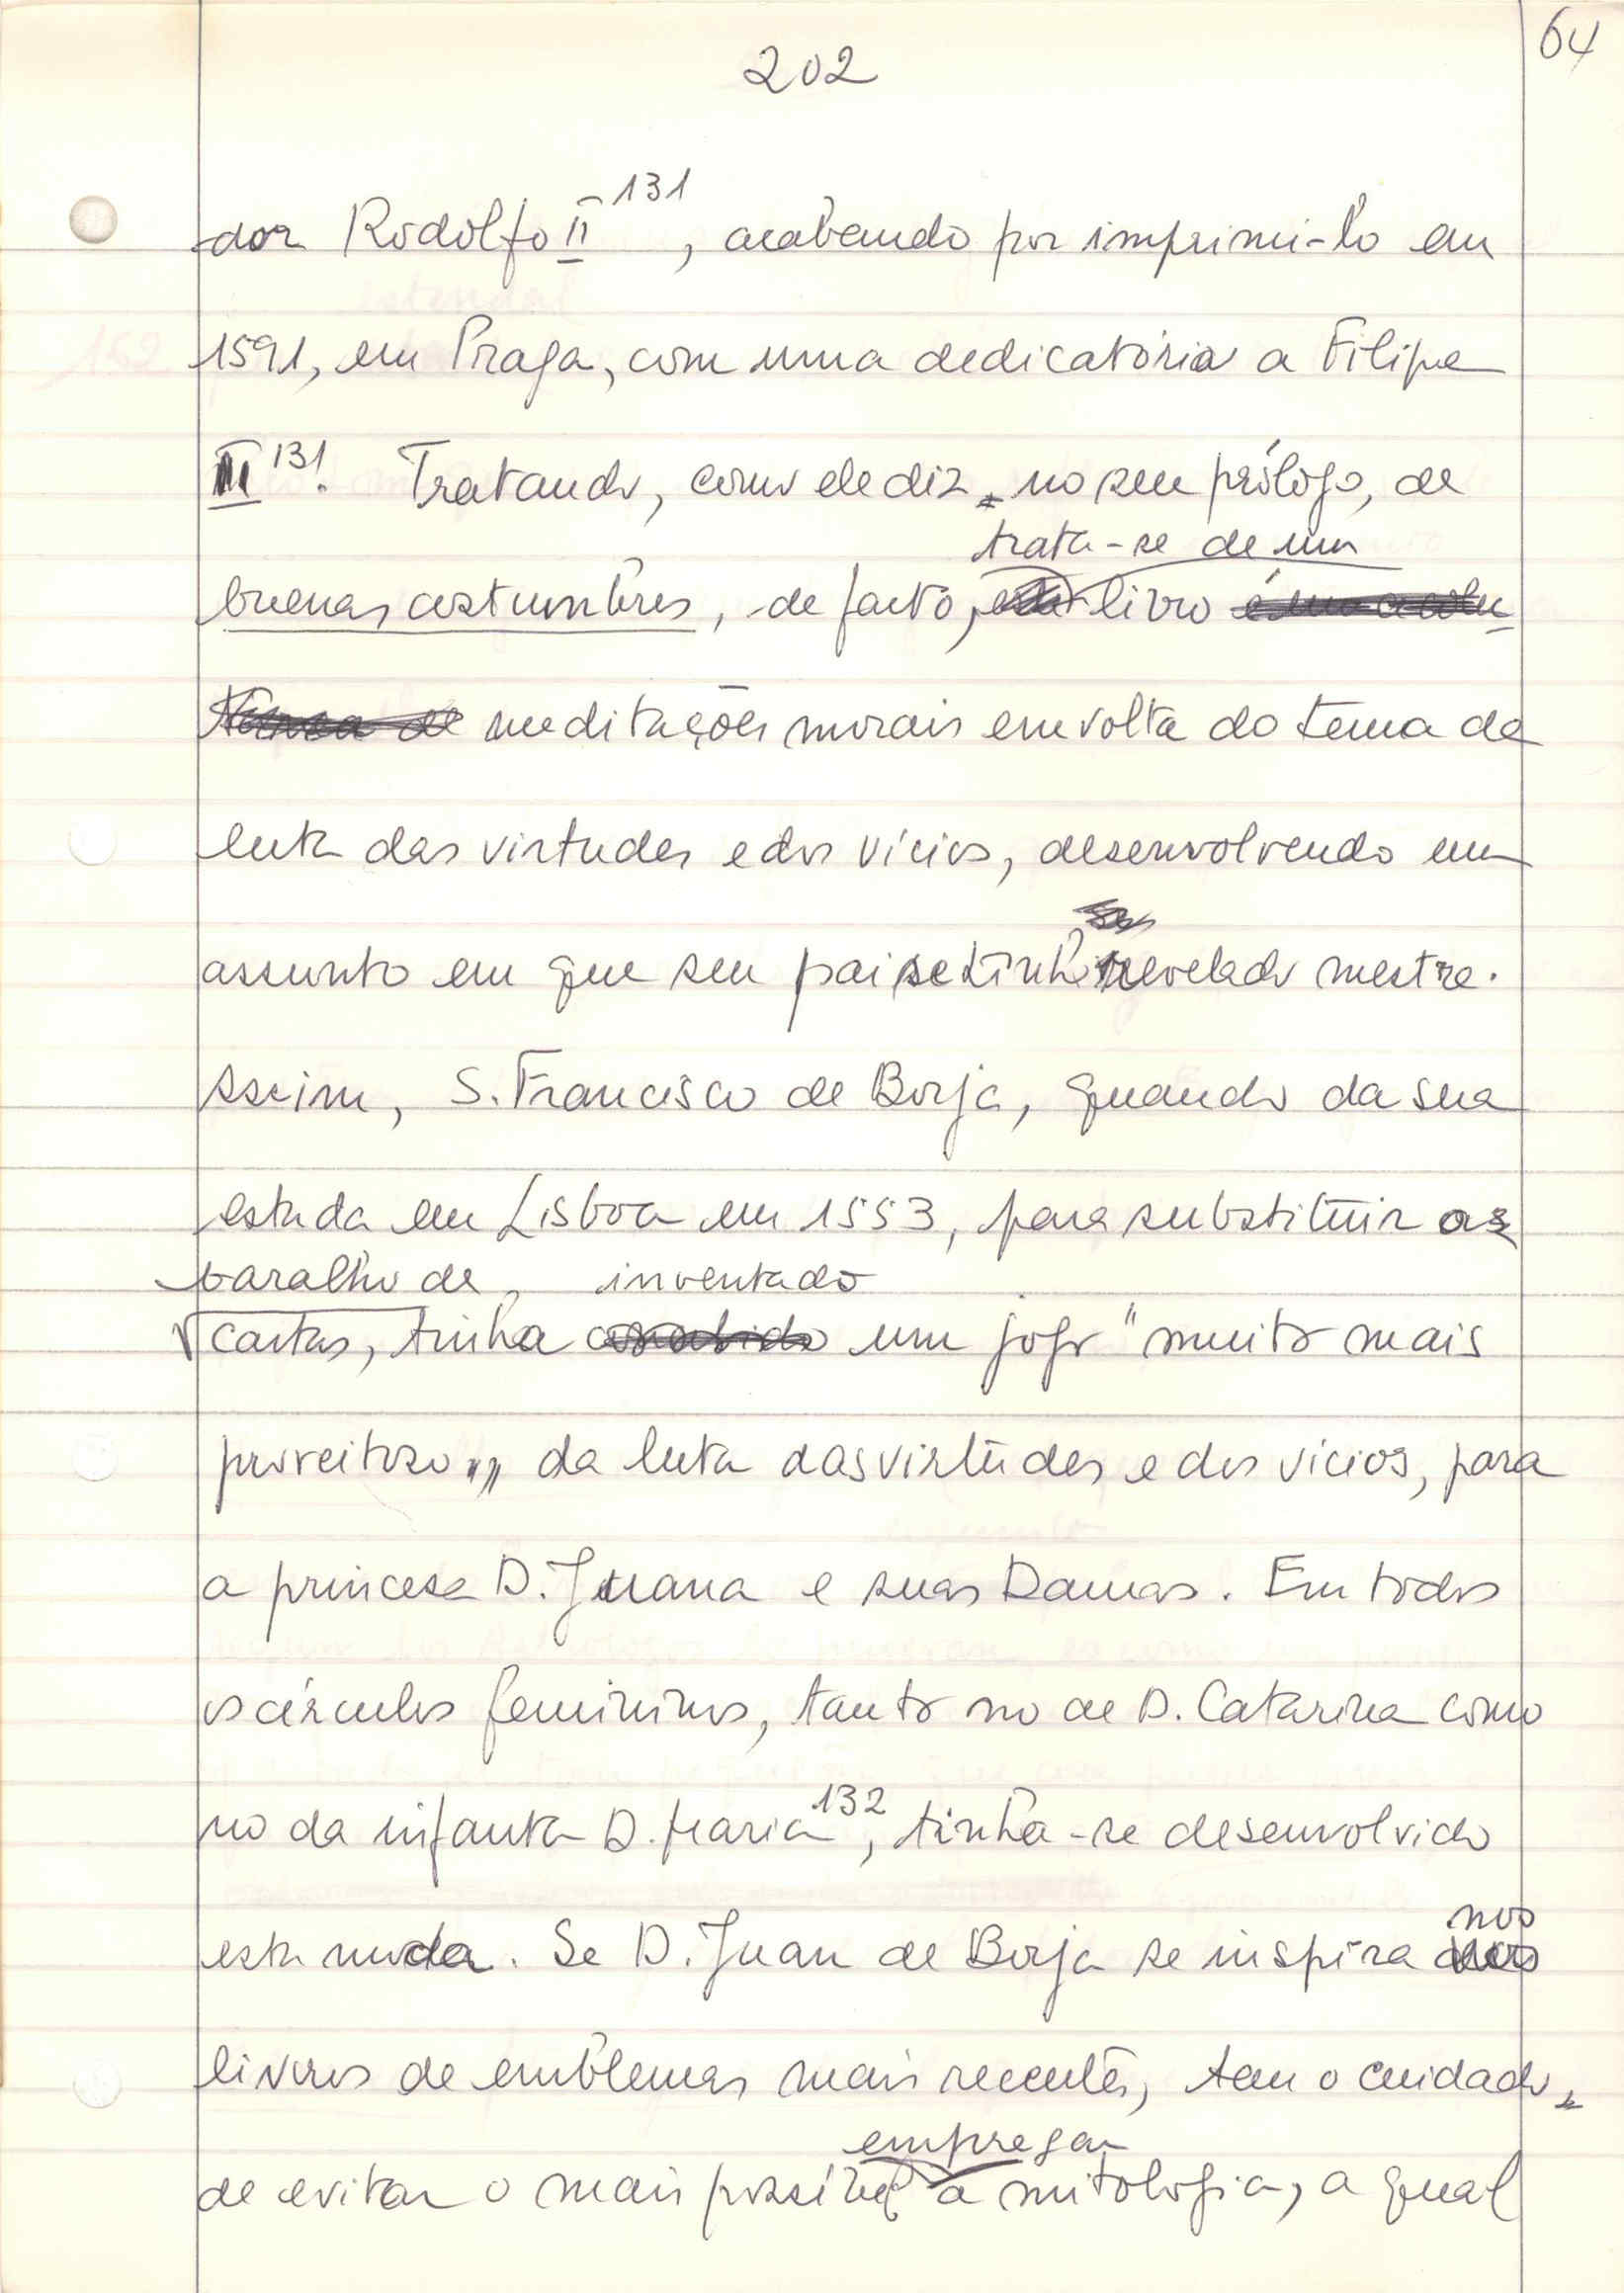 64
202
dor Rodolfo II 131, acabando por imprimi-lo em
1591, em Praga, com uma dedicatória a Filipe
III 131. Tratando, como ele diz no seu prólogo, de
trata-se de um
buenas costumbres, de facto, livro
meditações morais em volta do tema da
luta das virtudes e dos vícios, desenvolvendo um
assunto em que seu pai se tinha revelado mestre.
Assim, S. Francisco de Borja, quando da sua
estada em Lisboa em 1553, para substituir as
baralho de, inventado
cartas, tinha um jogo "muito mais
proveitoso", da luta das virtudes e dos vícios, para
a princesa D. Juana e suas Damas. Em todos
os círculos femininos, tanto no de D. Catarina como
no da infanta D. Maria 132, tinha-se desenvolvido
esta moda. Se D. Juan de Borja se inspira
nos
livros de emblemas mais recentes, tem o cuidado
empregar
de evitar o mais possível a mitologia, a qual